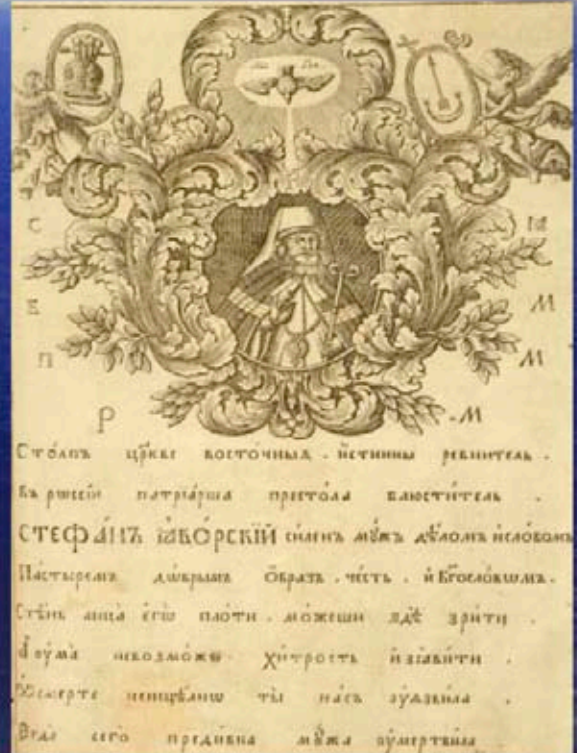 С М
Б М
П М
Р М
Сто́лпъ цр҃кве восто́чныѧ . и҆́стинны ревни́тель .
Въ рѡссі́и патрїа́рша престо́ла блюсти́тель .
СТЕФА́НЪ ꙖВО́РСКЇЙ си́ленъ мꙋ́жъ дѣ́ломъ и҆сло́вомъ
Па́стыремъ дѡ́брымъ ѻ҆́бразъ . че́сть . и҆ Бг҃осло́вѡмъ .
Стѣ́нь лица̀ є҆гѡ̀ пло́ти . мо́жеши здѣ̀ зрѣ́ти .
А᾽ оу҆ма̀ невозмо́жно хи́трость и҆з̾ѧви́ти .
сме́рте неисцѣ́лнѡ ты̀ на́съ оу҆ѧзви́ла .
сего̀ преди́вна мꙋ́жа оу҆мертви́ла